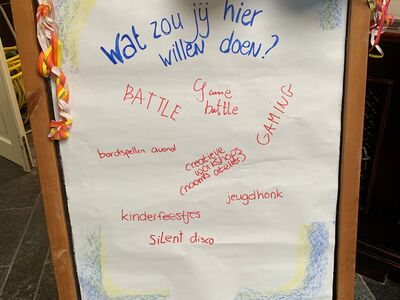 Wat zou jij hier
willen doen?
BATTLE
Game
battle
GAMING
bordspellen avond
creatieve
workshops
(naoms atelier)
jeugdhonk
kinderfeestjes
silent disco